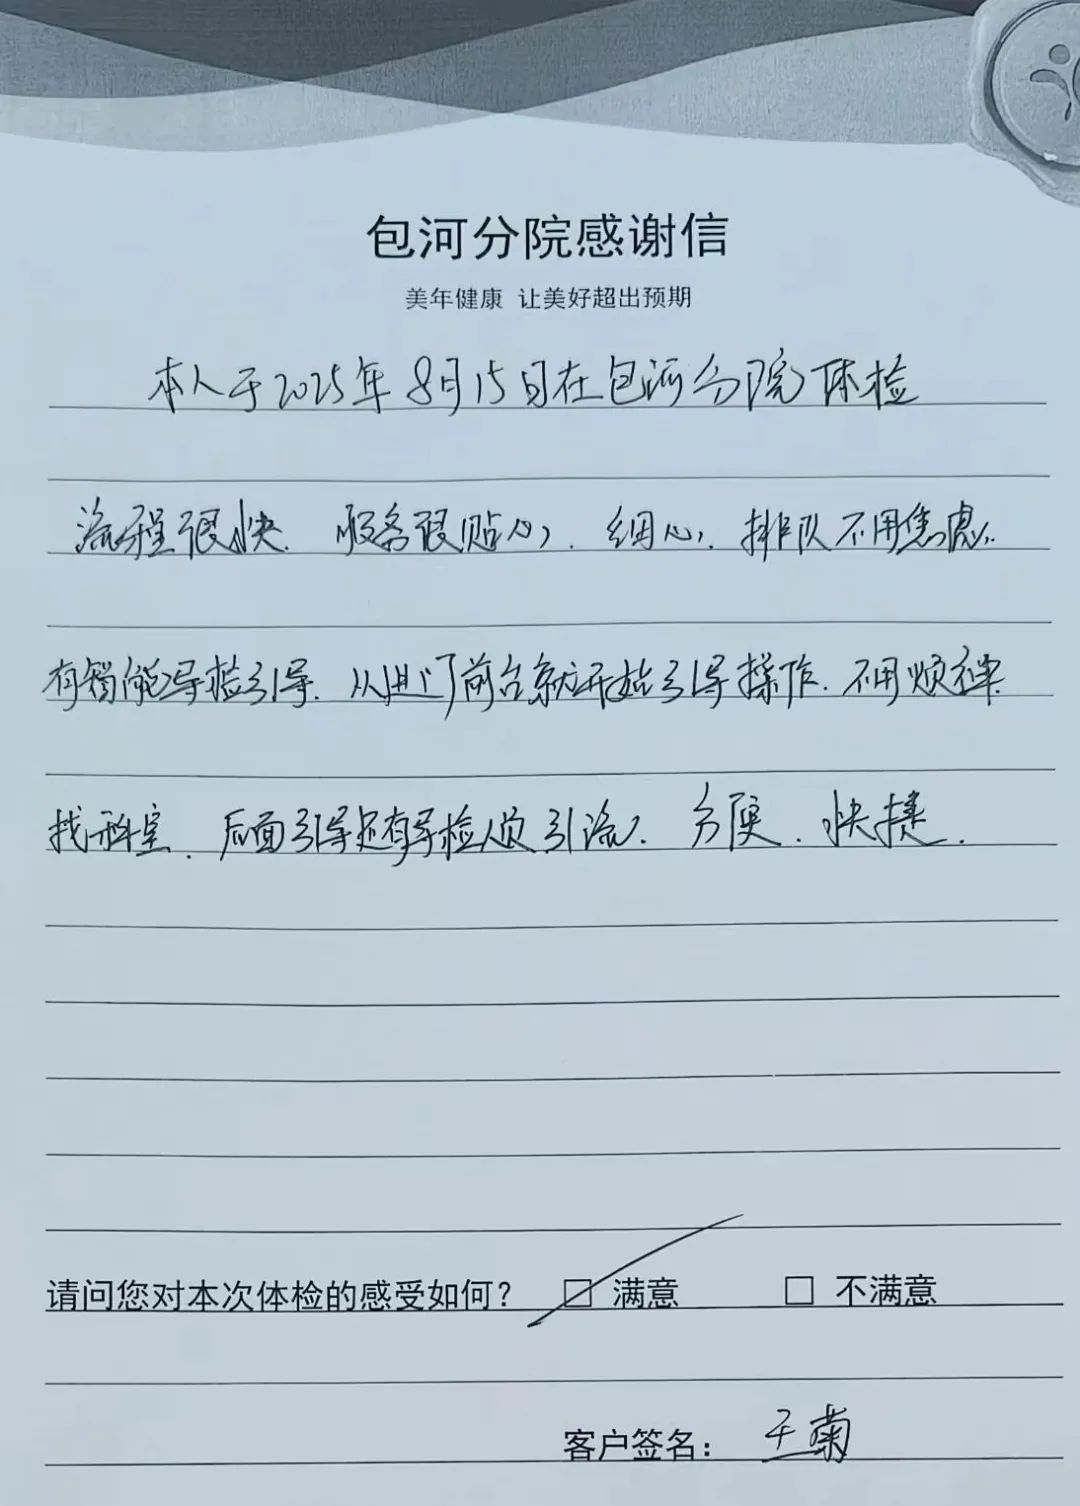 包河分院感谢信
美年健康 让美好超出预期
本人于2025年8月15日在包河分院体检
流程很快. 服务很贴心. 细心. 排队不用焦虑.
有智能导检引导. 从进门前台就开始引导操作. 不用烦神
找科室. 后面引导还有导检人员引流. 方便. 快捷.
请问您对本次体检的感受如何? ☑ 满意 □ 不满意
客户签名: 王菊